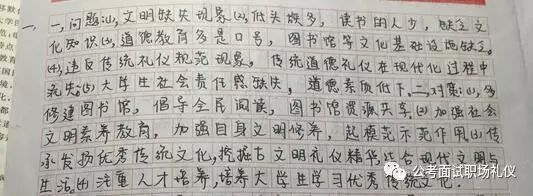 一、问题:(1)文明缺失现象(2)低头族多,读书的人少,缺乏文
化知识(3)道德教育多是口号,图书馆等文化基础设施缺乏。
(4)违反传统礼仪规范现象,传统道德礼仪在现代化过程中
丧失;(5)大学生社会责任感缺失,道德素质低下。二、对策:(1)多
修建图书馆,倡导全民阅读,图书馆资源共享。(2)加强社会
文明素养教育,加强自身文明修养,起模范示范作用(3)传
承发扬优秀传统文化,挖掘古文明礼仪精华,结合现代文明与
生活。(4)注重人才培养,培养大学生学习优秀传统文化。
公考面试职场礼仪